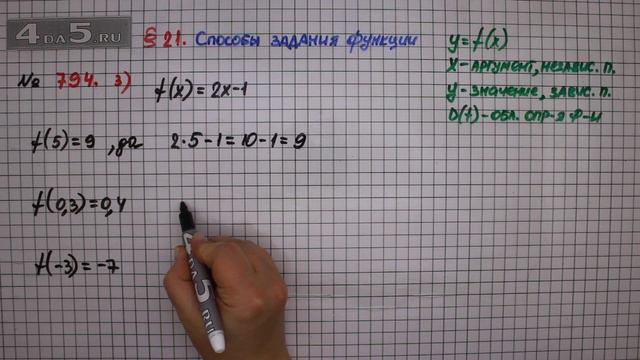 4DA5.RU
§ 21. Способы задания функции
y = f(x)
x - аргумент, независ. п.
y - значение, завис. п.
D(f) - обл. опр-я ф-и
№ 794. 3) f(x) = 2x - 1
f(5) = 9, да 2·5 - 1 = 10 - 1 = 9
f(0,3) = 0,4
f(-3) = -7
4DA5.RU